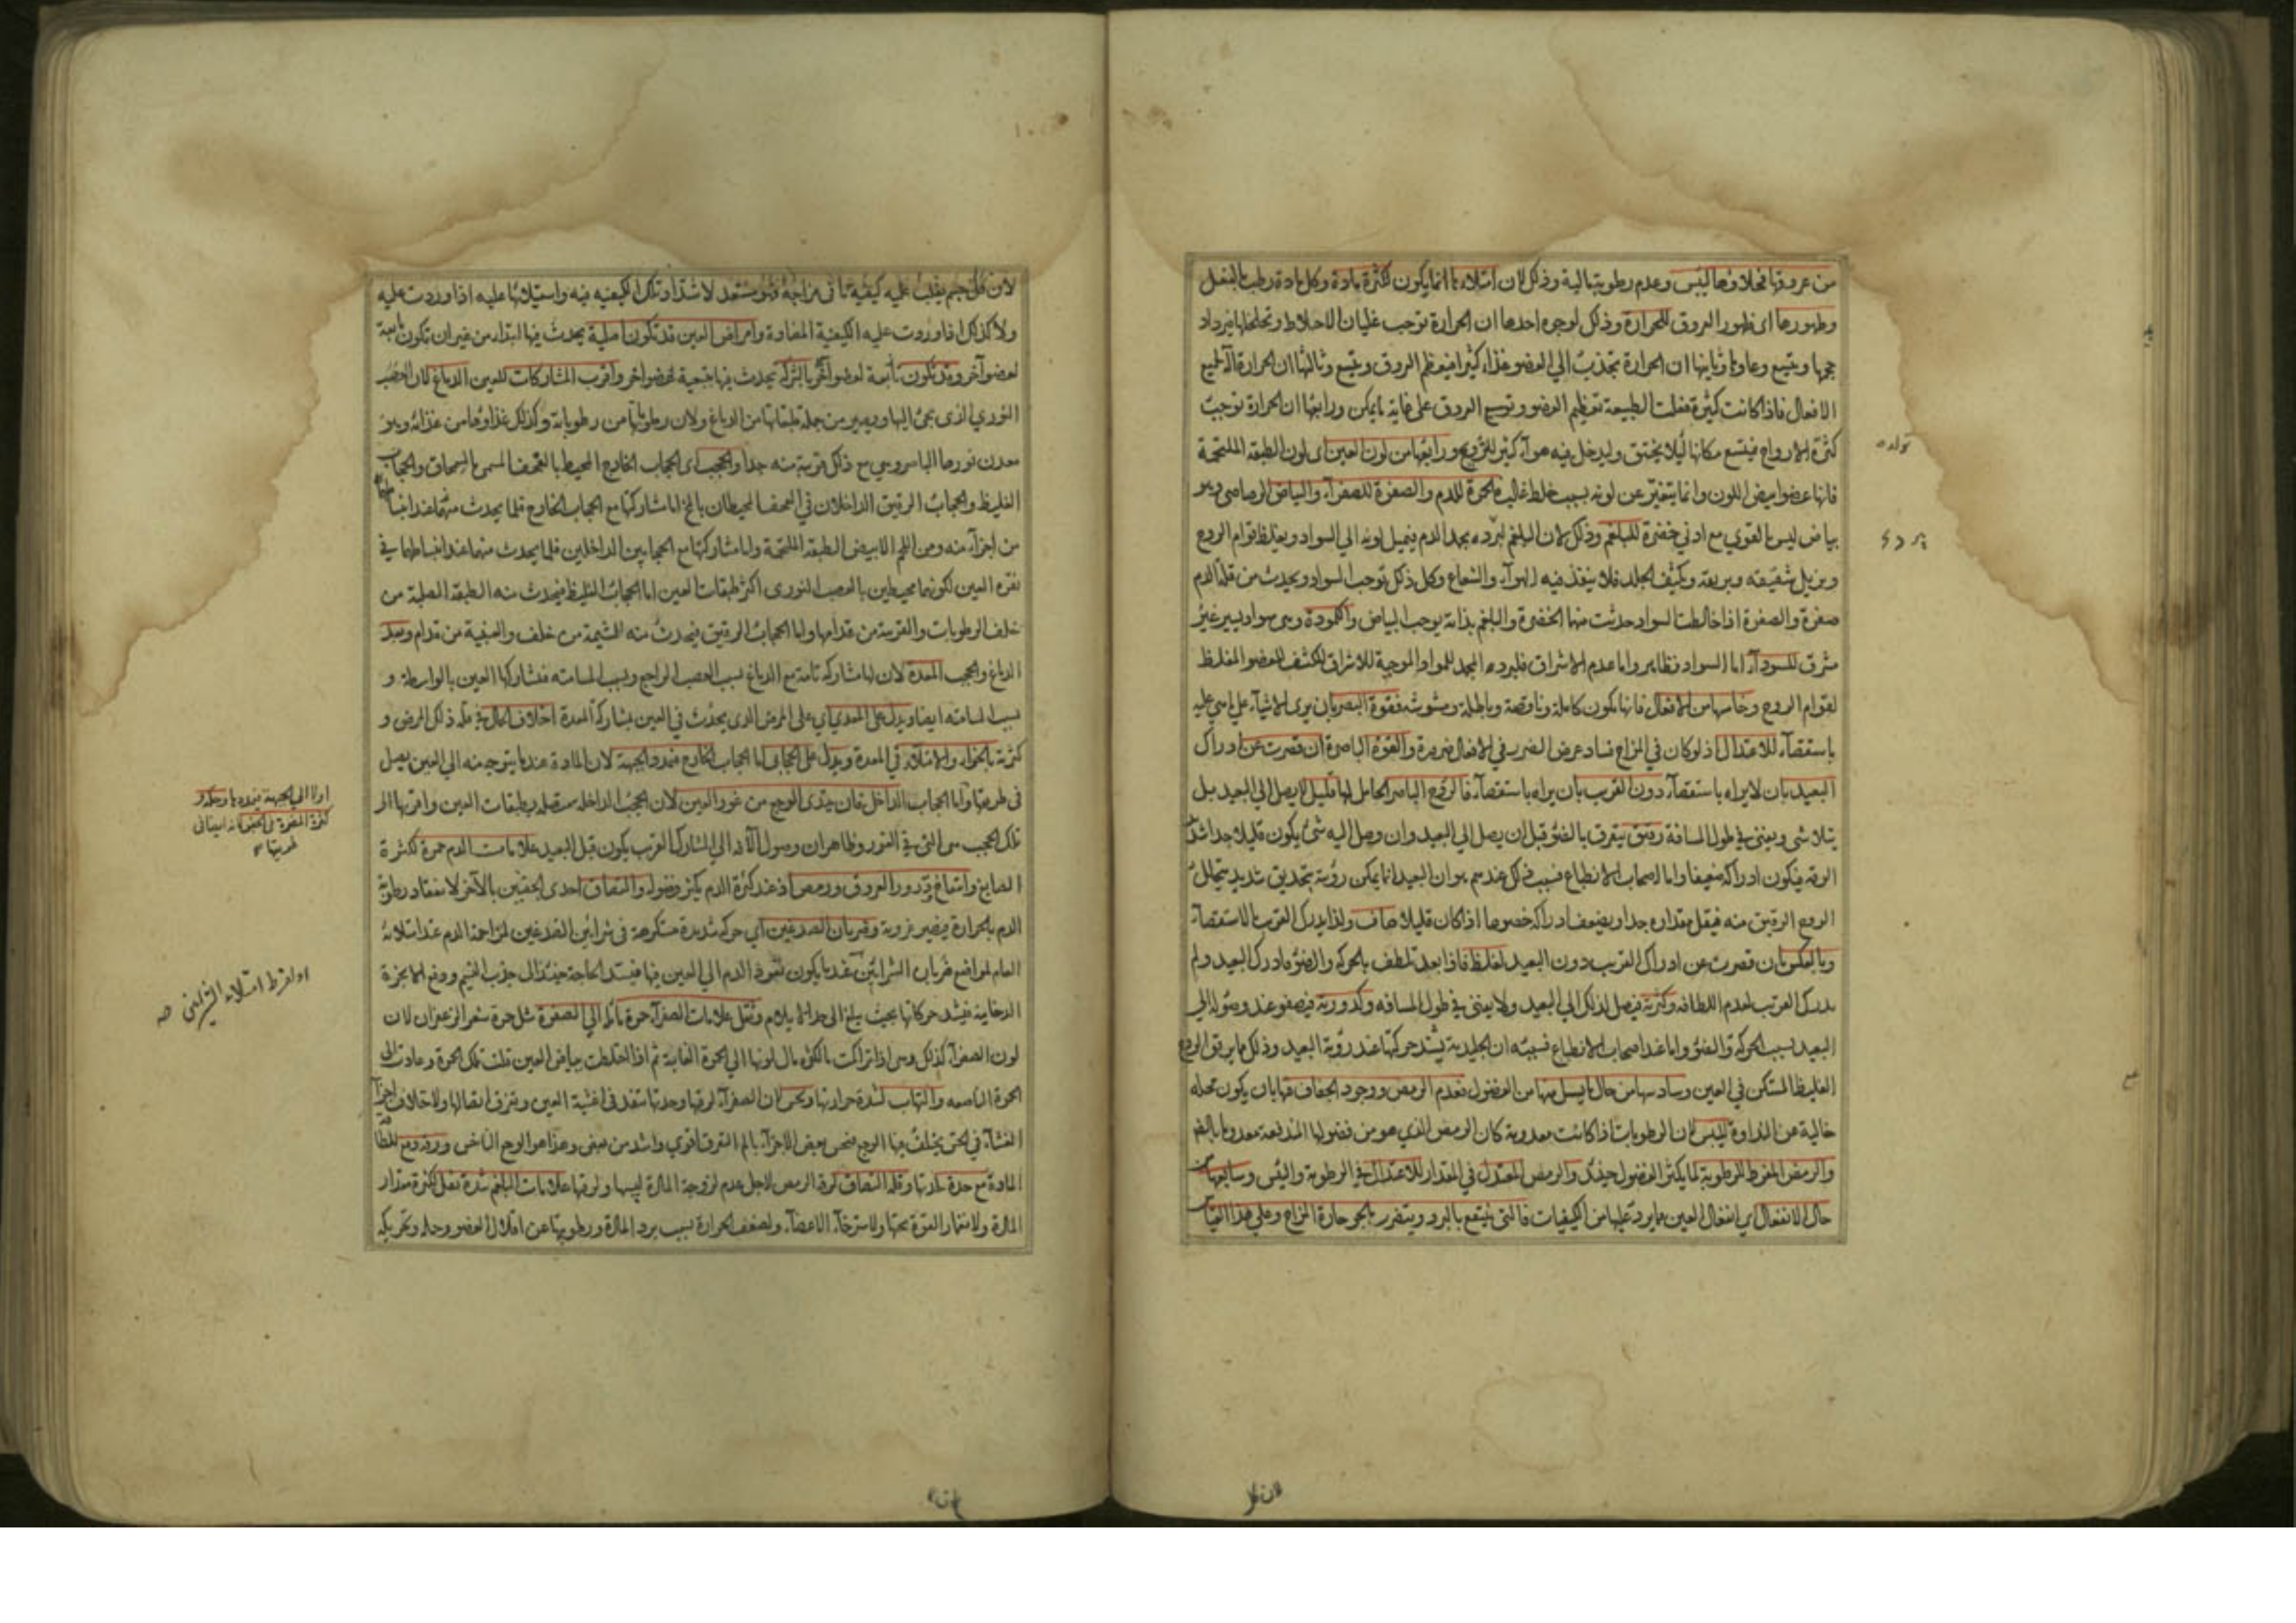 من عروقها فخلاؤها لليبس وعدم رطوبة بالية وذلك لان امتلاءها انما يكون لكثرة مادة وكل مادة رطبة بالفعل
وظهورها اى ظهور العروق للحرارة وذلك لوجوه احدها ان الحرارة توجب غليان الاخلاط وتخلخلها فيزداد
حجمها ويتسع وعاؤها وثانيها ان الحرارة تجذب الي العضو غذاء كثيرا فيعظم العروق ويتسع وثالثها ان الحرارة آلة لجميع
الافعال فاذا كانت كثيرة فعلت الطبيعة تعظيم العضو وتوسيع العروق على غاية ما يمكن ورابعها ان الحرارة توجب
كثرة الارواح فيتسع مكانها ليلا يختنق وليدخل فيه هوآء كثير للترويح ورابعها من لون العين اى لون الطبقة الملتحمة
فانها عضو ابيض اللون وانما يتغير عن لونه بسبب خلط غالب فالحمرة للدم والصفرة للصفرآء والبياض الرصاصى وهو
بياض ليس بالقوي مع ادنى خضرة للبلغم وذلك لان البلغم لبرده يجمد الدم فيميل لونه الي السواد ويغلظ قوام الروح
ويزيل شفيفه وبريقه ويكثف الجلد فلا ينفذ فيه الهوآء والشعاع وكل ذلك توجب السواد ويحدث من قلة الدم
صفرة والصفرة اذا خالطت السواد حدثت منها الخضرة والبلغم بذاته يوجب البياض والكمودة وهى سواد يسير غير
مشرق للسودآء اما السواد فظاهر واما عدم الاشراق فلبرده المجمد للمواد الموجبة للاشراق المكثف للعضو المغلظ
لقوام الروح وخامسها من الافعال فانها تكون كاملة وناقصة وباطلة ومشوشة فقوة البصر بان يرى الاشيآء على ما هي عليه
باستقصآء للاعتدال اذ لو كان في المزاج فساد عرض الضرر في الافعال ضرورة والقوة الباصرة ان قصرت عن ادراك
البعيد بان لا يراه باستقصآء دون القريب بان يراه باستقصآء فالروح الباصر الحامل لها قليل لا يصل الي البعيد بل
يتلاشى ويفنى في طول المسافة رقيق يتفرق بالضوء قبل ان يصل الي البعيد وان وصل اليه شئ يكون قليلا جدا شديد
الرقة فيكون ادراكه ضعيفا واما اصحاب الانطباع فسبب ذلك عندهم هو ان البعيد انما يمكن رؤيته بتحديق شديد يتحلل
الروح الرقيق منه فيقل مقداره جدا ويضعف ادراكه خصوصا اذا كان قليلا صاف ولذا يدرك القريب بالاستقصآء
وبالعكس بان قصرت عن ادراك القريب دون البعيد لغلظ فاذا بعد تلطف بالحركة والضوء فادرك البعيد ولم
يدرك القريب لعدم اللطافة وكثرته فيصل لذلك الي البعيد ولا يفنى في طول المسافة وكدورته فيصفو عند وصوله الي
البعيد بسبب الحركة والضوء واما عند اصحاب الانطباع فسببه ان الجليدية يشتد حركتها عند رؤية البعيد وذلك مما يرقق الروح
الغليظ المستكن في العين وسادسها من حال ما يسيل منها من الفضول فعدم الرمص ووجود الجفاف فيها بان يكون محله
خالية عن النداوة لليبس لان الرطوبات اذا كانت معدومة كان الرمص الذي هو من فضولها المندفعة معدوما بالضم
والرمص المفرط للرطوبة لما يكثر الفضول حينئذ والرمص المعتدل في المقدار للاعتدال في الرطوبة واليبس وسابعها من
حال الانفعال اي انفعال العين مما يرد عليها من الكيفيات فالتى ينتفع بالبرد ويتضرر بالحر حارة المزاج وعلى هذا القياس
تولده
لان كل جسم يغلب عليه كيفية ما في مزاجه فهو مستعد لاشتداد تلك الكيفية فيه واستيلائها عليه اذا وردت عليه
ولا كذلك اذا وردت عليه الكيفية المضادة وامراض العين قد تكون اصلية يحدث فيها ابتداء من غير ان تكون تابعة
لعضو آخر وقد تكون تابعة لعضو آخر بالشركة يحدث فيها بتبعية عضو آخر واقرب المشاركات للعين الدماغ لان العصب
النوري الذى يجئ اليها ويصير من جملة طبقاتها من الدماغ ولان رطوباتها من رطوباته وكذلك غذاؤها من غذائه وهو
معدن نورها الباصر وهي مع ذلك قريبة منه جدا والحجب اى الحجاب الخارج المحيط بالقحف المسمى بالسمحاق والحجاب
الغليظ والحجاب الرقيق الداخلان في القحف المحيطان بالمخ اما مشاركتها مع الحجاب الخارج فلما يحدث منه عند انبساطه
من اجزآء منه ومن اللحم الابيض الطبقة الملتحمة واما مشاركتها مع الحجابين الداخلين فلما يحدث منهما عند انبساطهما في
نقرة العين لكونهما محيطين بالعصب النورى اكثر طبقات العين اما الحجاب الغليظ فيحدث منه الطبقة الصلبة من
خلف الرطوبات والقرنية من قدامها واما الحجاب الرقيق فيحدث منه المشيمية من خلف والعنبية من قدام وبعد
الدماغ والحجب المعدة لان لها مشاركة تامة مع الدماغ بسبب العصب الراجع وبسبب المسامتة فتشاركها العين بالواسطة و
بسبب المسامتة ايضا ويدل على المعدي اي على المرض الذى يحدث في العين بمشاركة المعدة اختلاف الحال في قلة ذلك المرض و
كثرته بالخواء والامتلاء في المعدة ويدل على الحجابى اما الحجاب الخارج فتمدد الجبهة لان المادة عند ما يتوجه منه الي العين يصل
في طريقها واما الحجاب الداخل فبان يبتدى الوجع من غور العين لان الحجب الداخلة متصلة بطبقات العين واقربها الى
تلك الحجب هى التى في الغور وظاهر ان وصول الآفة الي المشارك القريب يكون قبل البعيد علامات الدم حمرة لكثرة
الصابغ وانتفاخ ودرور العروق ورمص اذ عند كثرة الدم يكثر فضوله والتصاق احدى الجفنين بالآخر لانعقاد رطوبة
الدم بالحرارة فيصير غروية وضربان الصدغين اى حركة شديدة مستكرهة في شرائين الصدغين لمزاحمة الدم عند امتلائه
العام لمواضع ضربان الشرايين عند ما يكون نفوذ الدم الي العين فيها فيشتد الحاجة حينئذ الى جذب النسيم ودفع الابخرة
الدخانية فيشتد حركاتها بحيث يبلغ الى حد الايلام وثقل علامات الصفرآء حمرة مائلة الي الصفرة مثل حمرة شعر الزعفران لان
لون الصفرآء كذلك وهى اذا تراكمت بالكثرة مال لونها الي الحمرة القانية ثم اذا اختلطت ببياض العين قلت تلك الحمرة وعادت الى
الحمرة الناصعة والتهاب لشدة حرارتها ونخس لان الصفرآء لرقتها وحدتها تنفذ في اغشية العين ويفرق اتصالها ولاختلاف اجزآء
الغشآء في الحس يختلف فيها الوجع فيحس بعض الاجزآء بالم التفرق اقوى واشد من بعض وهذا هو الوجع الناخس ورقة دمع للطافة
المادة مع حدة لحدتها وقلة التصاق لرقة الرمص لاجل عدم لزوجة المادة ليبسها ولرقتها علامات البلغم شدة ثقل لكثرة مقدار
المادة ولانغمار القوة تحتها ولاسترخآء الاعضآء ولضعف الحرارة بسبب برد المادة ورطوبتها عن اقلال العضو وحمله وتحريكه
او لفرط امتلاء الشرايين صح